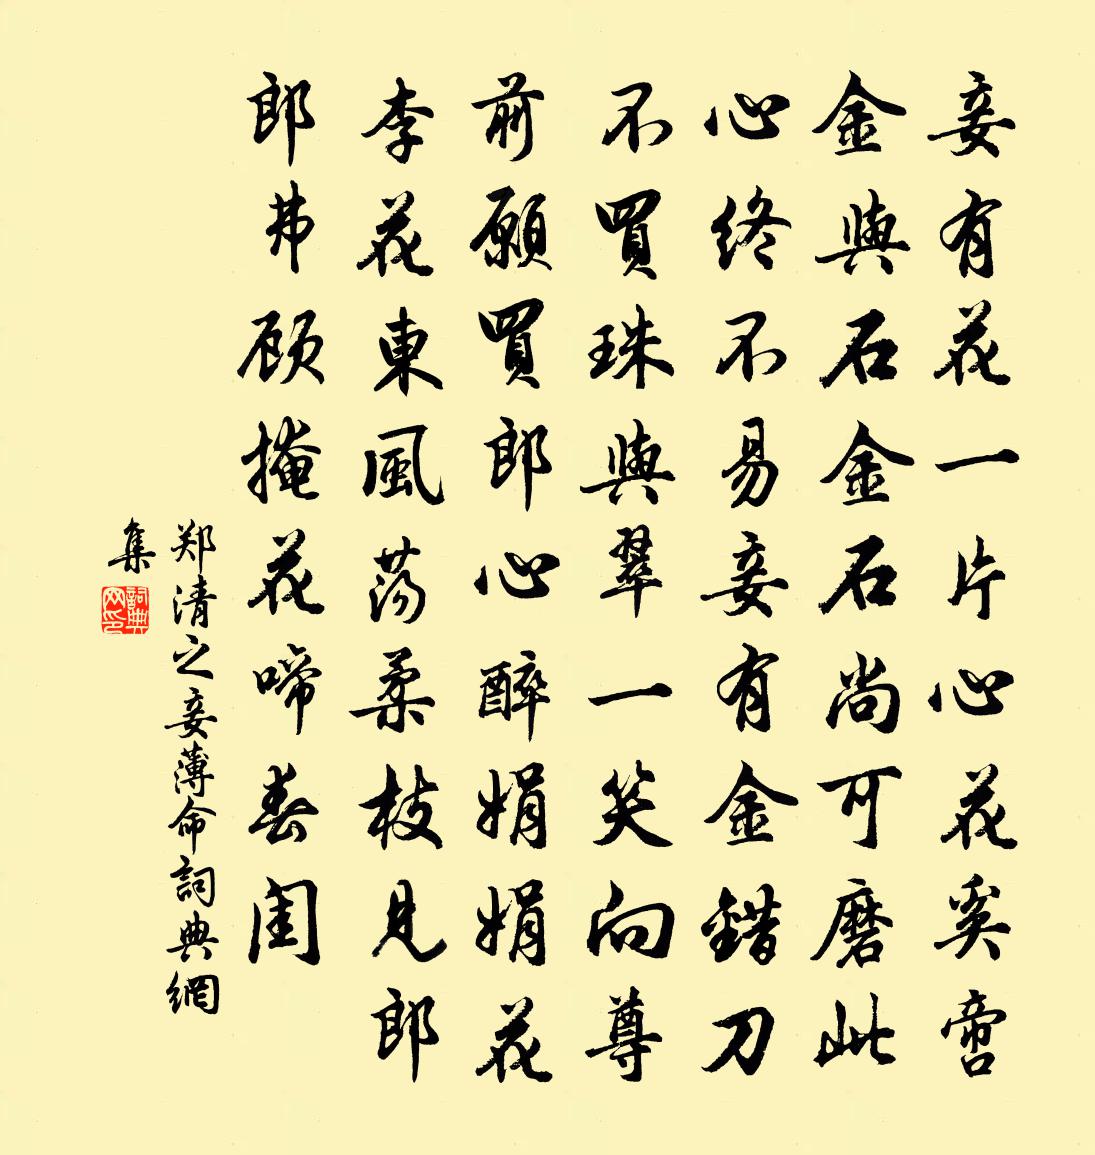 妾有花一片心花奚啻
金與石金石尚可磨此
心終不易妾有金錯刀
不買珠與翠一笑向尊
前願買郎心醉娟娟花
李花東風蕩柔枝見郎
郎弗顾掩花啼春閨
郑清之妾薄命詞典網
集
詞典网印